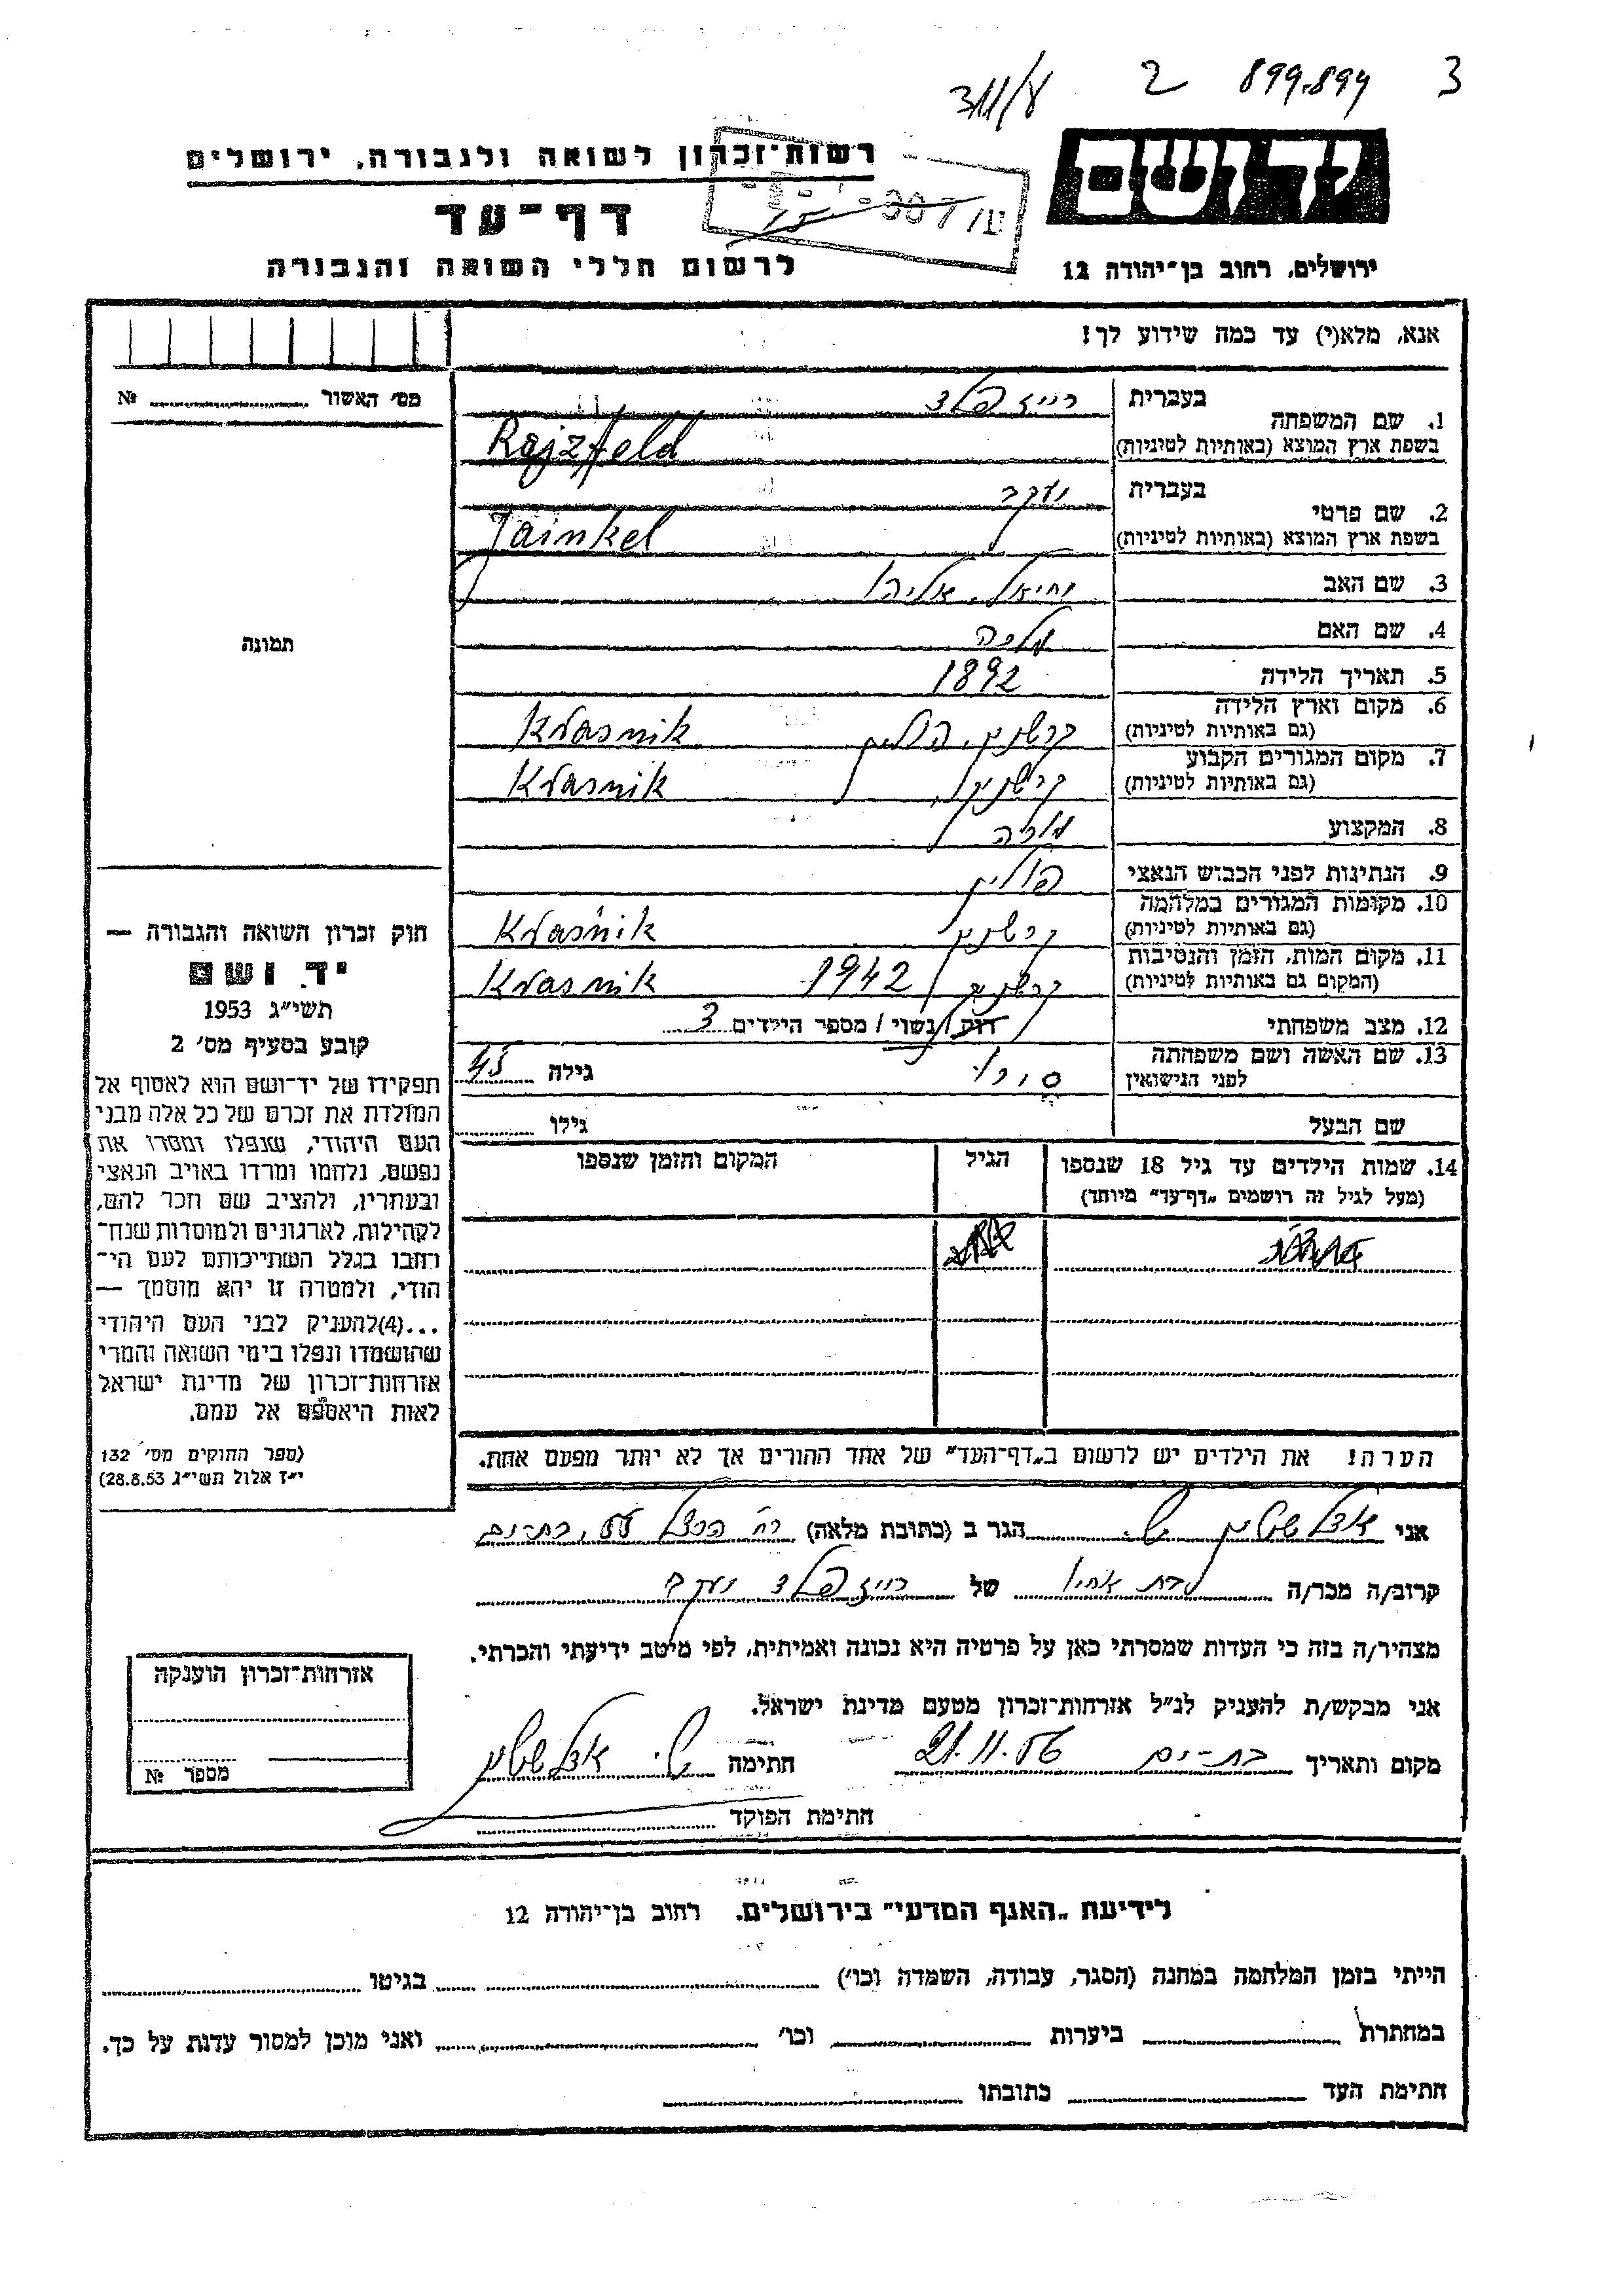 311/8 2 899.894 3
יד ושם
רשות-זכרון לשואה ולגבורה, ירושלים
דף-עד
לרשום חללי השואה והגבורה
ירושלים, רחוב בן-יהודה 12
אנא, מלא(י) עד כמה שידוע לך!
מס' האשור № 
1. שם המשפחה בעברית רייזפלד
בשפת ארץ המוצא (באותיות לטיניות) Rajzfeld
2. שם פרטי בעברית יעקב
בשפת ארץ המוצא (באותיות לטיניות) Jainkel
3. שם האב יחיאל אליהו
4. שם האם מלכה
תמונה
5. תאריך הלידה 1892
6. מקום וארץ הלידה
(גם באותיות לטיניות) קרשניק, פולין Kraśnik
7. מקום המגורים הקבוע
(גם באותיות לטיניות) קרשניק Kraśnik
8. המקצוע
9. הנתינות לפני הכבוש הנאצי פולין
10. מקומות המגורים במלחמה
(גם באותיות לטיניות) קרשניק Kraśnik
11. מקום המות, הזמן והנסיבות
(המקום גם באותיות לטיניות) קרשניק 1942 Kraśnik
12. מצב משפחתי רוק / נשוי / מספר הילדים 3
13. שם האשה ושם משפחתה
לפני הנישואין גילה 45
שם הבעל גילו
14. שמות הילדים עד גיל 18 שנספו הגיל המקום והזמן שנספו
(מעל לגיל זה רושמים "דף-עד" מיוחד)
הערה! את הילדים יש לרשום ב"דף-העד" של אחד ההורים אך לא יותר מפעם אחת.
חוק זכרון השואה והגבורה —
יד ושם
תשי"ג 1953
קובע בסעיף מס' 2
תפקידו של יד-ושם הוא לאסוף אל
המולדת את זכרם של כל אלה מבני
העם היהודי, שנפלו ומסרו את
נפשם, נלחמו ומרדו באויב הנאצי
ובעוזריו, ולהציב שם וזכר להם,
לקהילות, לארגונים ולמוסדות שנח־
רחבו בגלל השתייכותם לעם הי־
הודי, ולמטרה זו יהא מוסמך —
...(4)להעניק לבני העם היהודי
שהושמדו ונפלו בימי השואה והמרי
אזרחות-זכרון של מדינת ישראל
לאות היאספם אל עמם.
(ספר החוקים מס' 132
י"ז אלול תשי"ג 28.8.53)
אני אדלשטיין ש. הגר ב (כתובת מלאה) רח' הרצל 55, בת-ים
קרוב/ה מכר/ה בת אחיו של רייזפלד יעקב
מצהיר/ה בזה כי העדות שמסרתי כאן על פרטיה היא נכונה ואמיתית, לפי מיטב ידיעתי והכרתי.
אני מבקש/ת להעניק לנ"ל אזרחות-זכרון מטעם מדינת ישראל.
מקום ותאריך בת-ים 21.11.56 חתימה ש. אדלשטיין
חתימת הפוקד
אזרחות-זכרון הוענקה
מספר №
לידיעת "האגף המדעי" בירושלים. רחוב בן-יהודה 12
הייתי בזמן המלחמה במחנה (הסגר, עבודה, השמדה וכו') בגיטו
במחתרת ביערות וכו' ואני מוכן למסור עדות על כך.
חתימת העד כתובתו